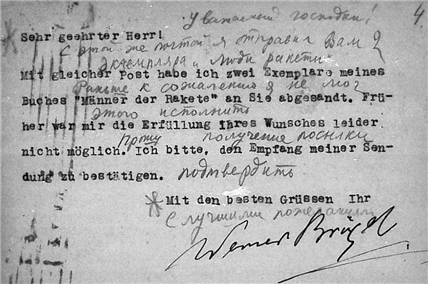 Уважаемый господин!
4
Sehr geehrter Herr!
С этой же почтой я отправил Вам 2
экземпляра „Люди ракеты
Mit gleicher Post habe ich zwei Exemplare meines
Раньше к сожалению я не мог
Buches "Männer der Rakete" an Sie abgesandt. Frü-
этого исполнить
her war mir die Erfüllung Ihres Wunsches leider
Прошу получение посылки
nicht möglich. Ich bitte, den Empfang meiner Sen-
dung zu bestätigen. подтвердить
Mit den besten Grüssen Ihr
С лучшими пожеланиями
Werner Brügel